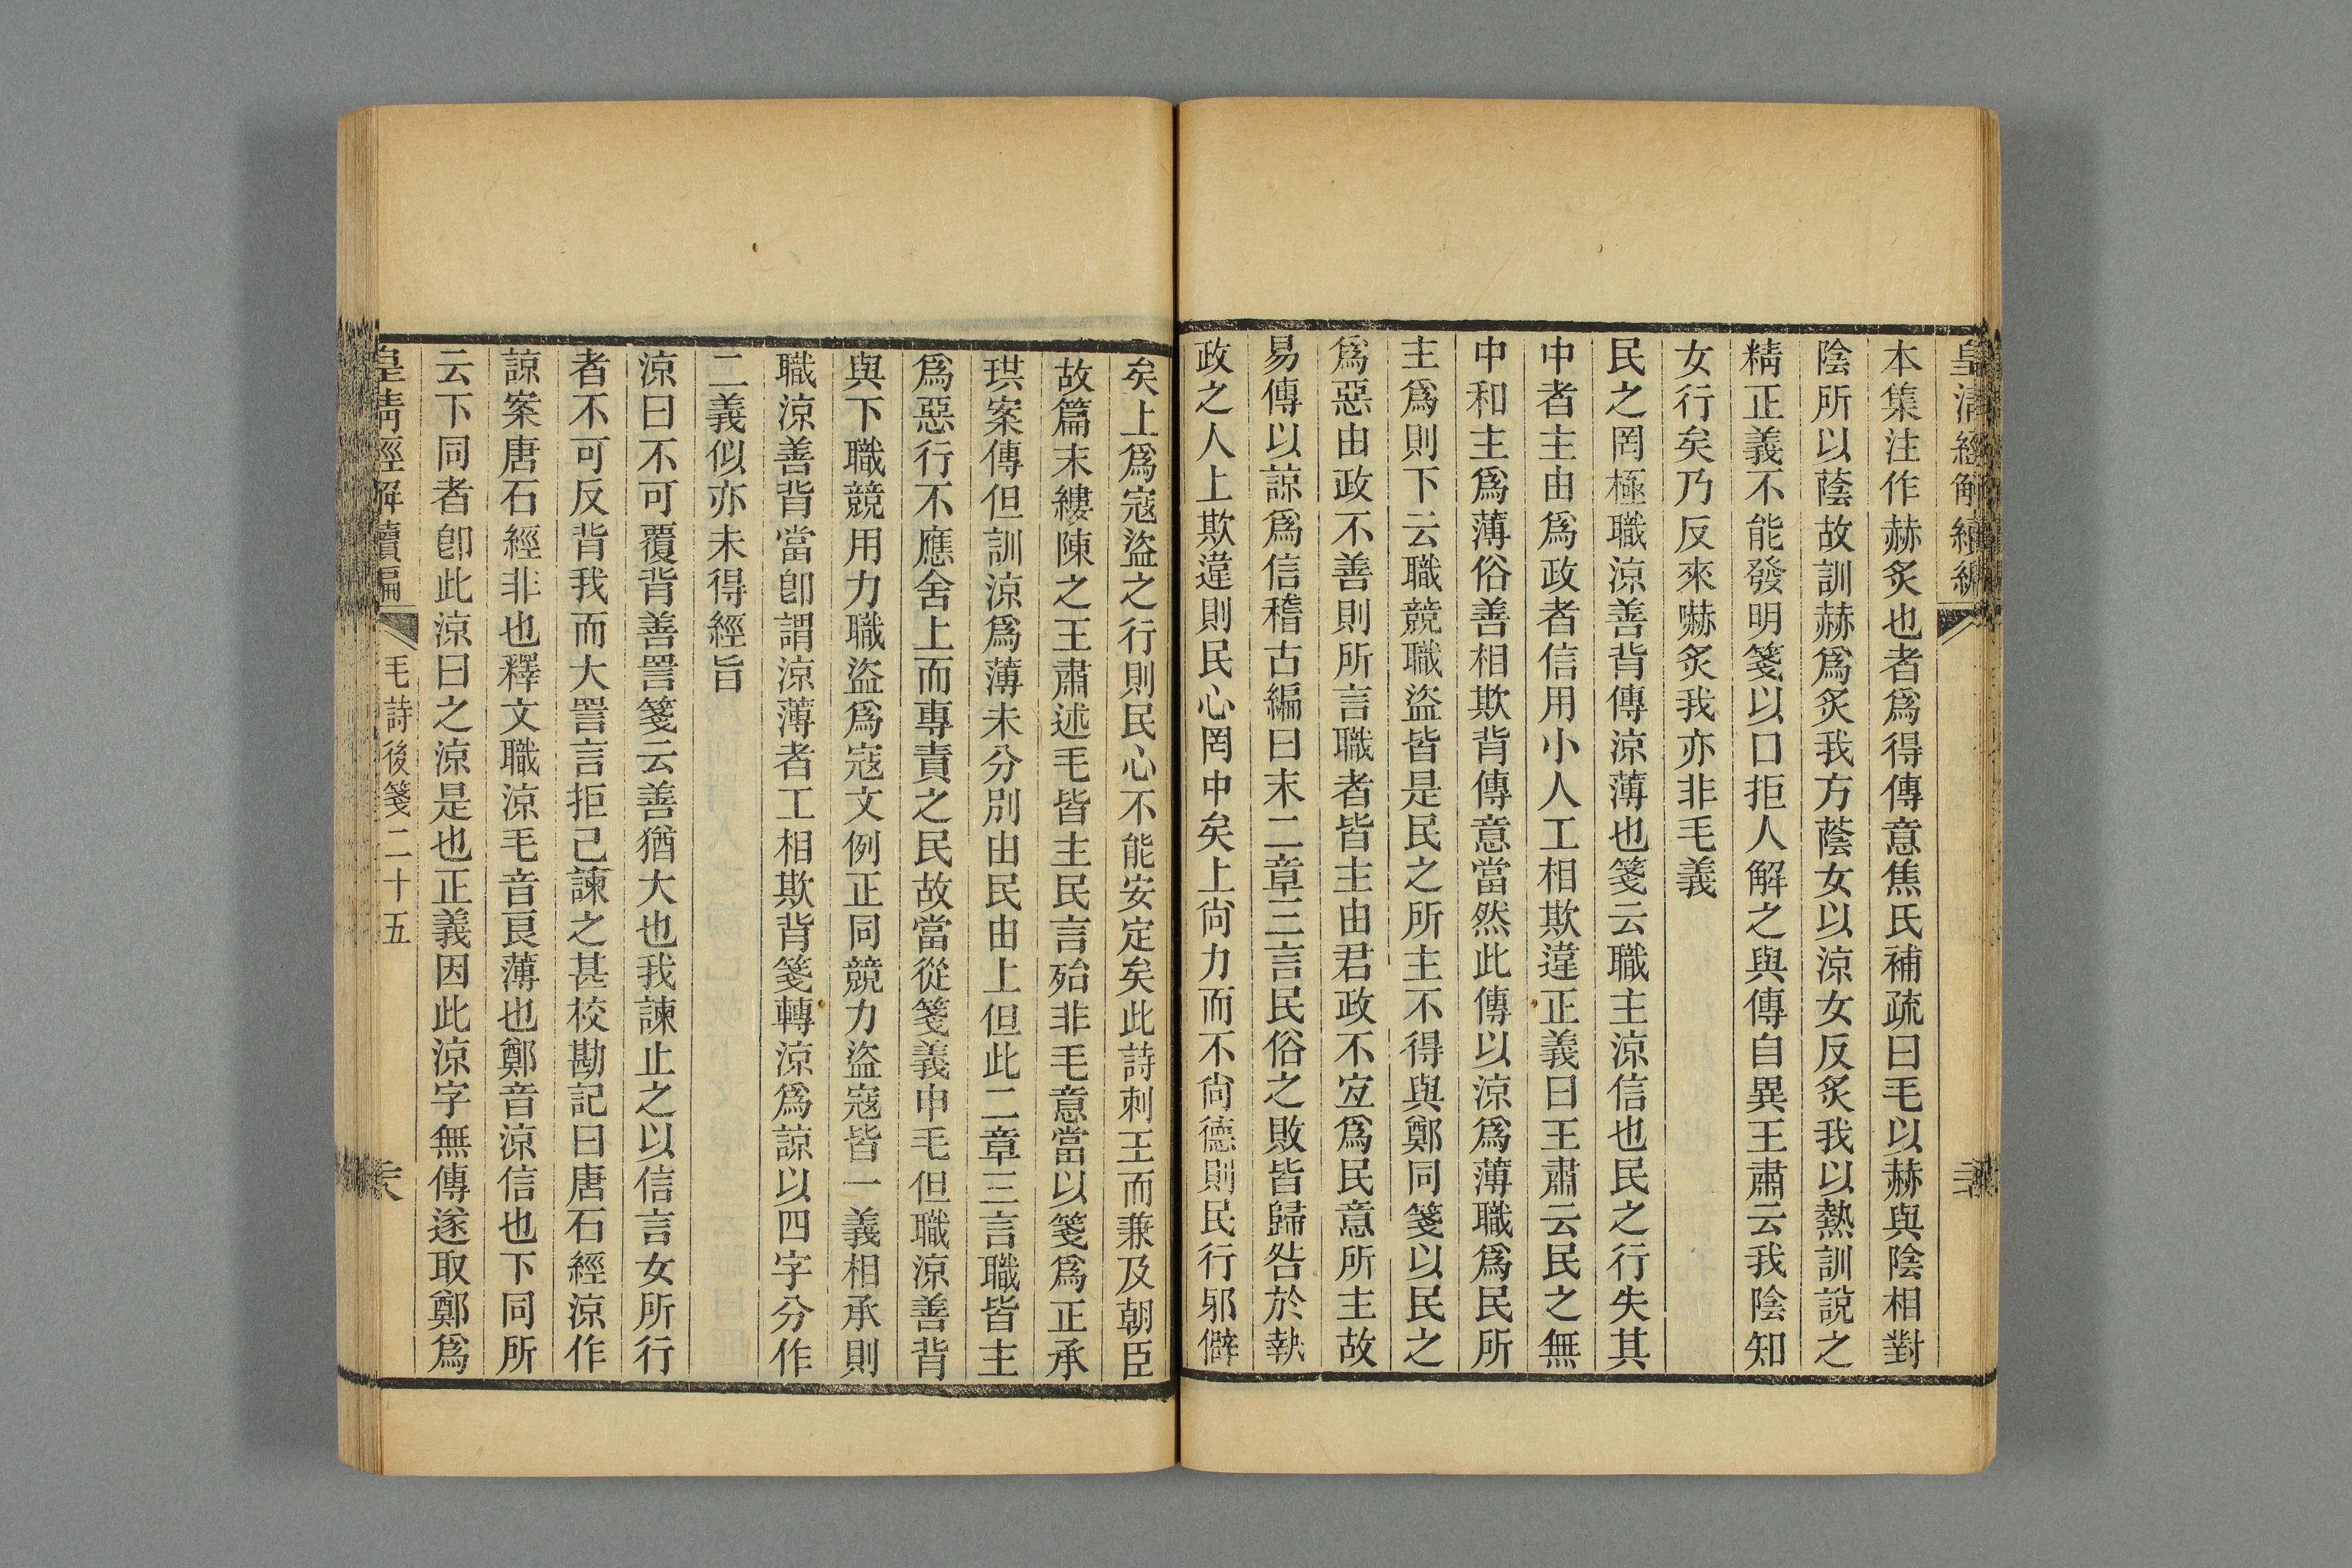 皇清經解續編
本集注作赫炙也者爲得傳意焦氏補疏曰毛以赫與陰相對
陰所以蔭故訓赫爲炙我方蔭女以涼女反炙我以熱訓說之
精正義不能發明箋以口拒人解之與傳自異王肅云我陰知
女行矣乃反來嚇炙我亦非毛義
民之罔極職涼善背傳涼薄也箋云職主涼信也民之行失其
中者主由爲政者信用小人工相欺違正義曰王肅云民之無
中和主爲薄俗善相欺背傳意當然此傳以涼爲薄職爲民所
主爲則下云職競職盜皆是民之所主不得與鄭同箋以民之
爲惡由政不善則所言職者皆主由君政不宐爲民意所主故
易傳以諒爲信稽古編曰末二章三言民俗之敗皆歸咎於執
政之人上欺違則民心罔中矣上尙力而不尙德則民行邪僻
矣上爲寇盜之行則民心不能安定矣此詩刺王而兼及朝臣
故篇末縷陳之王肅述毛皆主民言殆非毛意當以箋爲正承
珙案傳但訓涼爲薄未分別由民由上但此二章三言職皆主
爲惡行不應舍上而專責之民故當從箋義申毛但職涼善背
與下職競用力職盜爲寇文例正同競力盜寇皆一義相承則
職涼善背當卽謂涼薄者工相欺背箋轉涼爲諒以四字分作
二義似亦未得經旨
涼曰不可覆背善詈箋云善猶大也我諫止之以信言女所行
者不可反背我而大詈言拒己諫之甚校勘記曰唐石經涼作
諒案唐石經非也釋文職涼毛音良薄也鄭音涼信也下同所
云下同者卽此涼曰之涼是也正義因此涼字無傳遂取鄭爲
皇清經解續編 毛詩後箋二十五